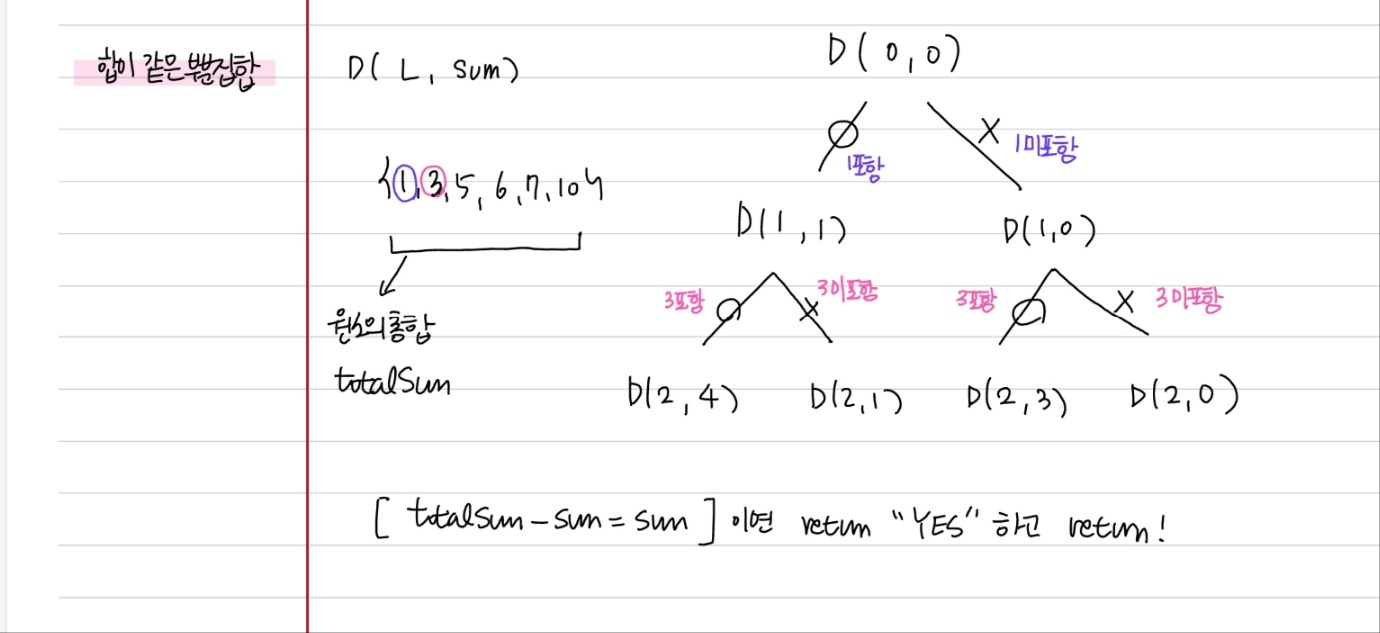 합이 같은 부분집합
D( L, sum)
{1, 3, 5, 6, 7, 10}
원소의 총합
totalSum
D( 0, 0)
1포함
X 1미포함
D(1, 1)
D(1, 0)
3포함
X 3미포함
3포함
X 3미포함
D(2, 4)
D(2, 1)
D(2, 3)
D(2, 0)
[ totalSum - sum = sum ] 이면 return "YES" 하고 return!